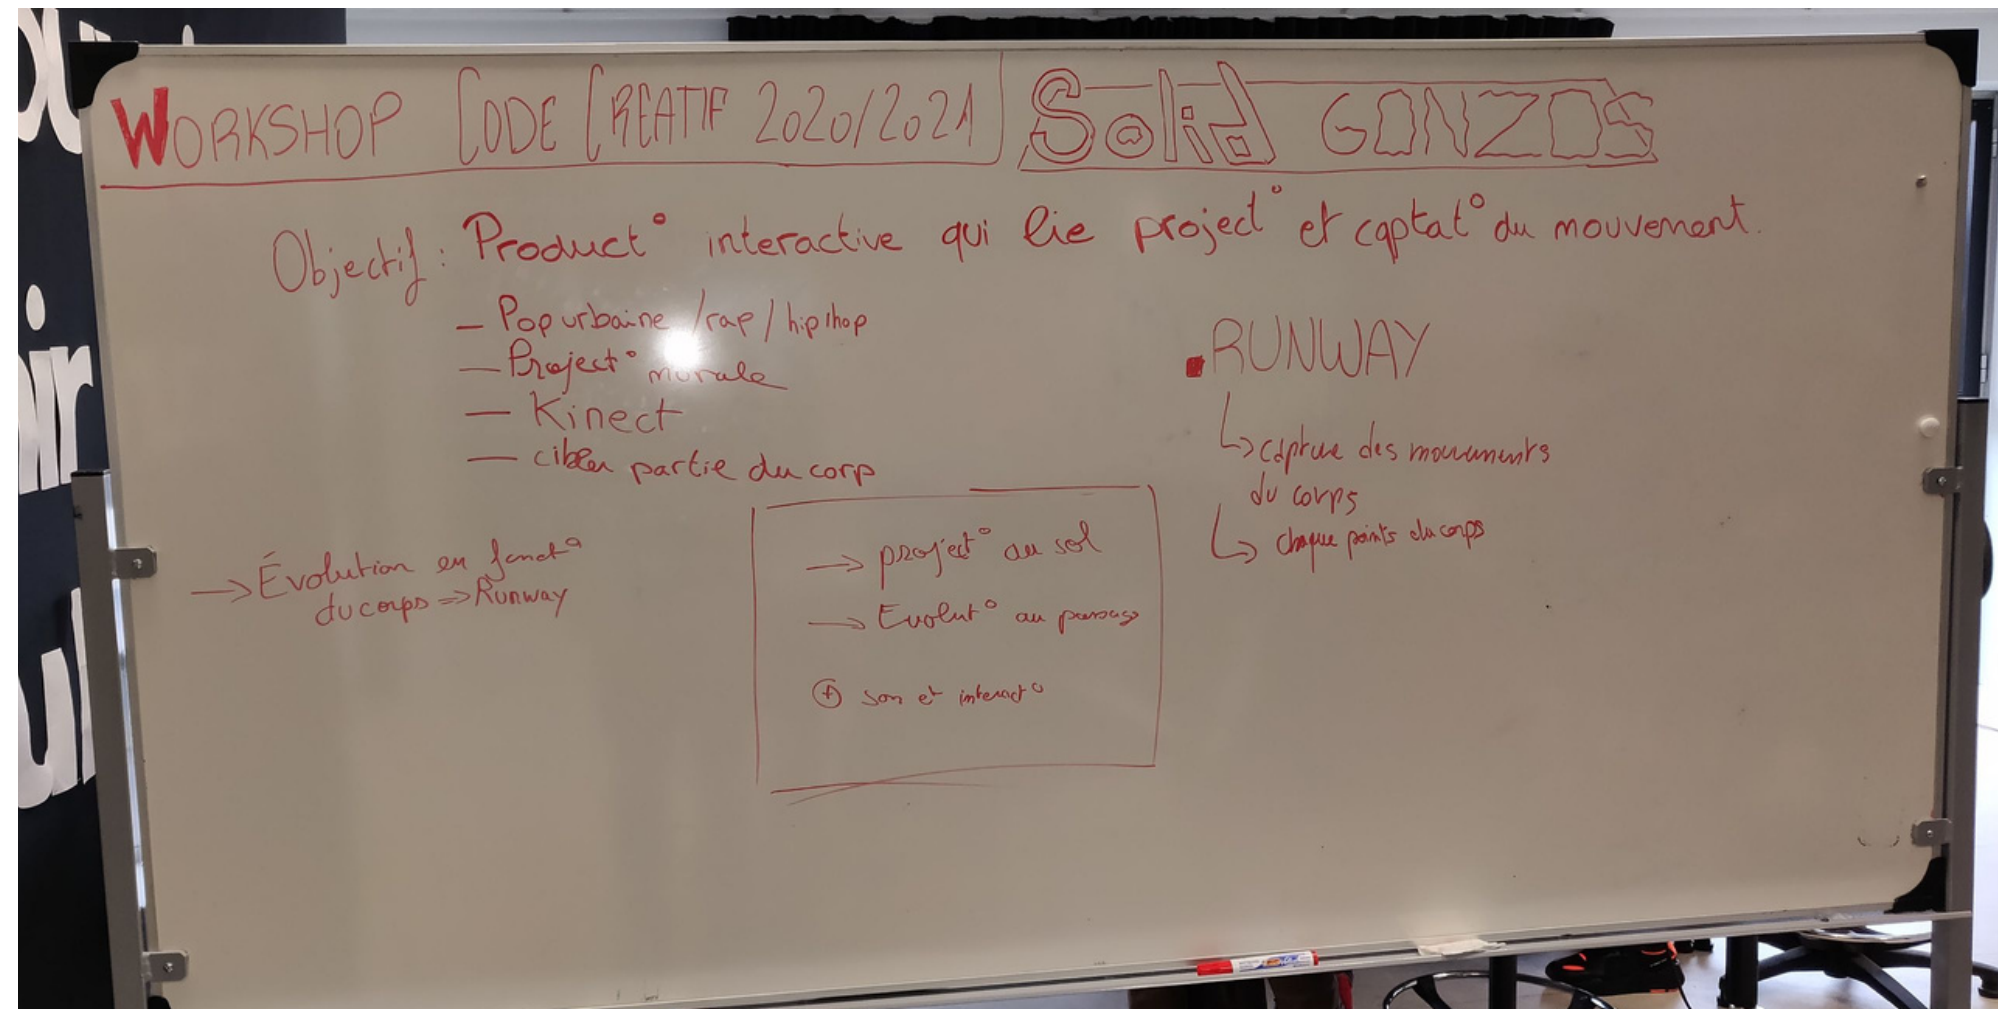 WORKSHOP CODE CREATIF 2020/2021 Solid GONZOS
Objectif : Product° interactive qui lie project° et captat° du mouvement.
– Pop urbaine / rap / hip hop
– Project° murale
– Kinect
– cibler partie du corp
→ Évolution en fonct°
du corps => Runway
→ project° au sol
→ Evolut° au passage
⊕ son et interact°
▪ RUNWAY
↳ capture des mouvements
du corps
↳ chaque points du corps